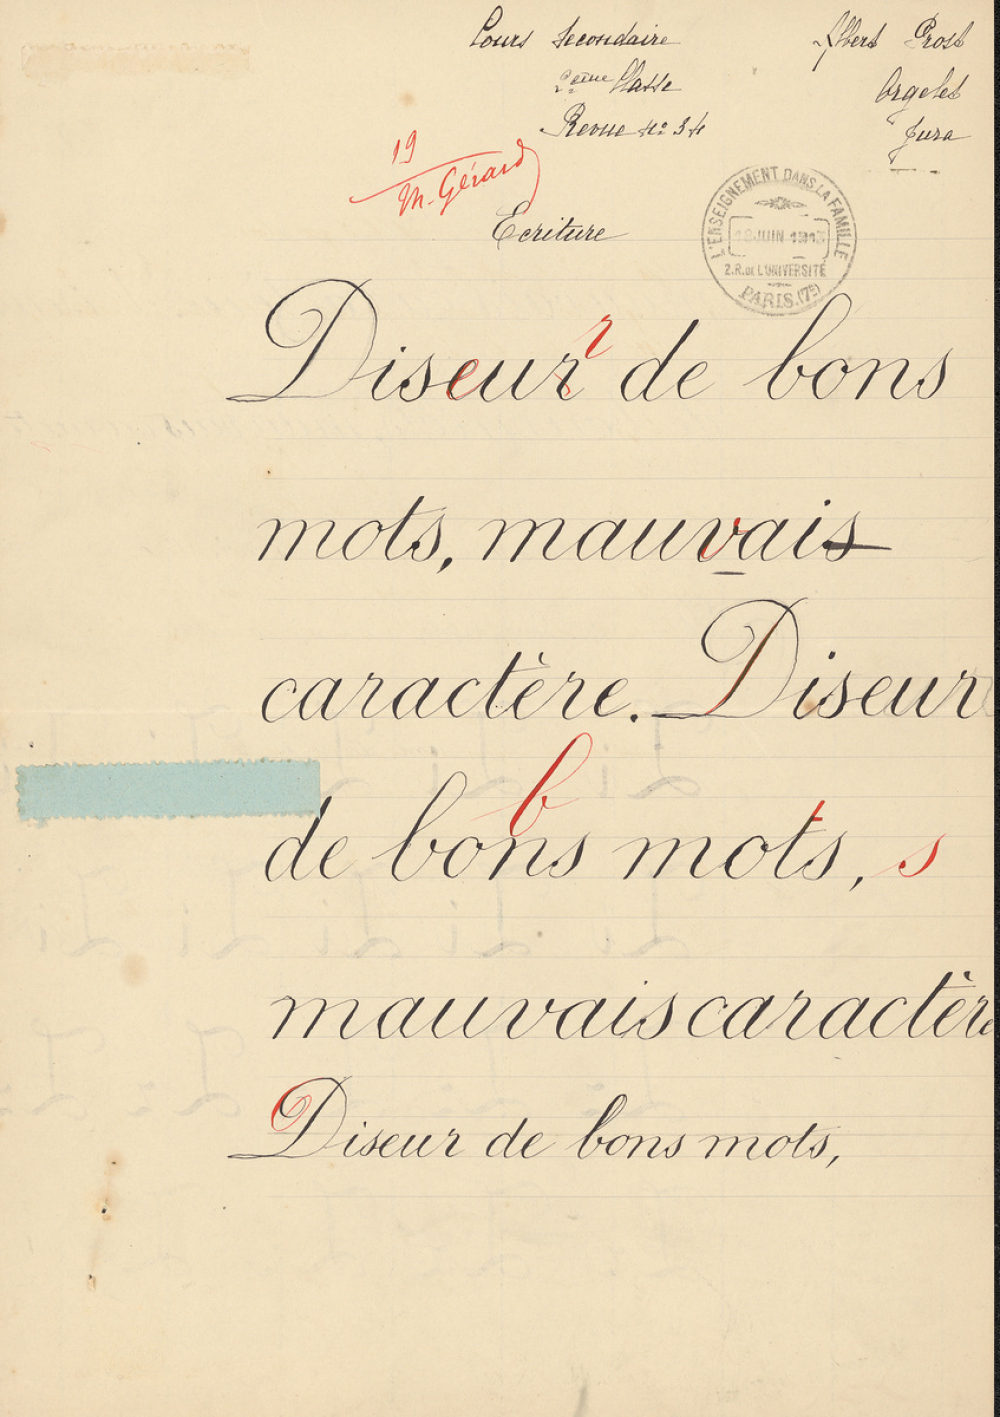 Cours Secondaire
2ème Classe
Revue No 34
Albert Prost
Orgelet
Jura
19
M. Gérard
L'ENSEIGNEMENT DANS LA FAMILLE
18 JUIN 1913
2.R. DE L'UNIVERSITÉ
PARIS.(7e)
Ecriture
r
Diseur de bons
mots, mauvais
caractère. Diseur
b
de bons mots, s
mauvais caractère
Diseur de bons mots,